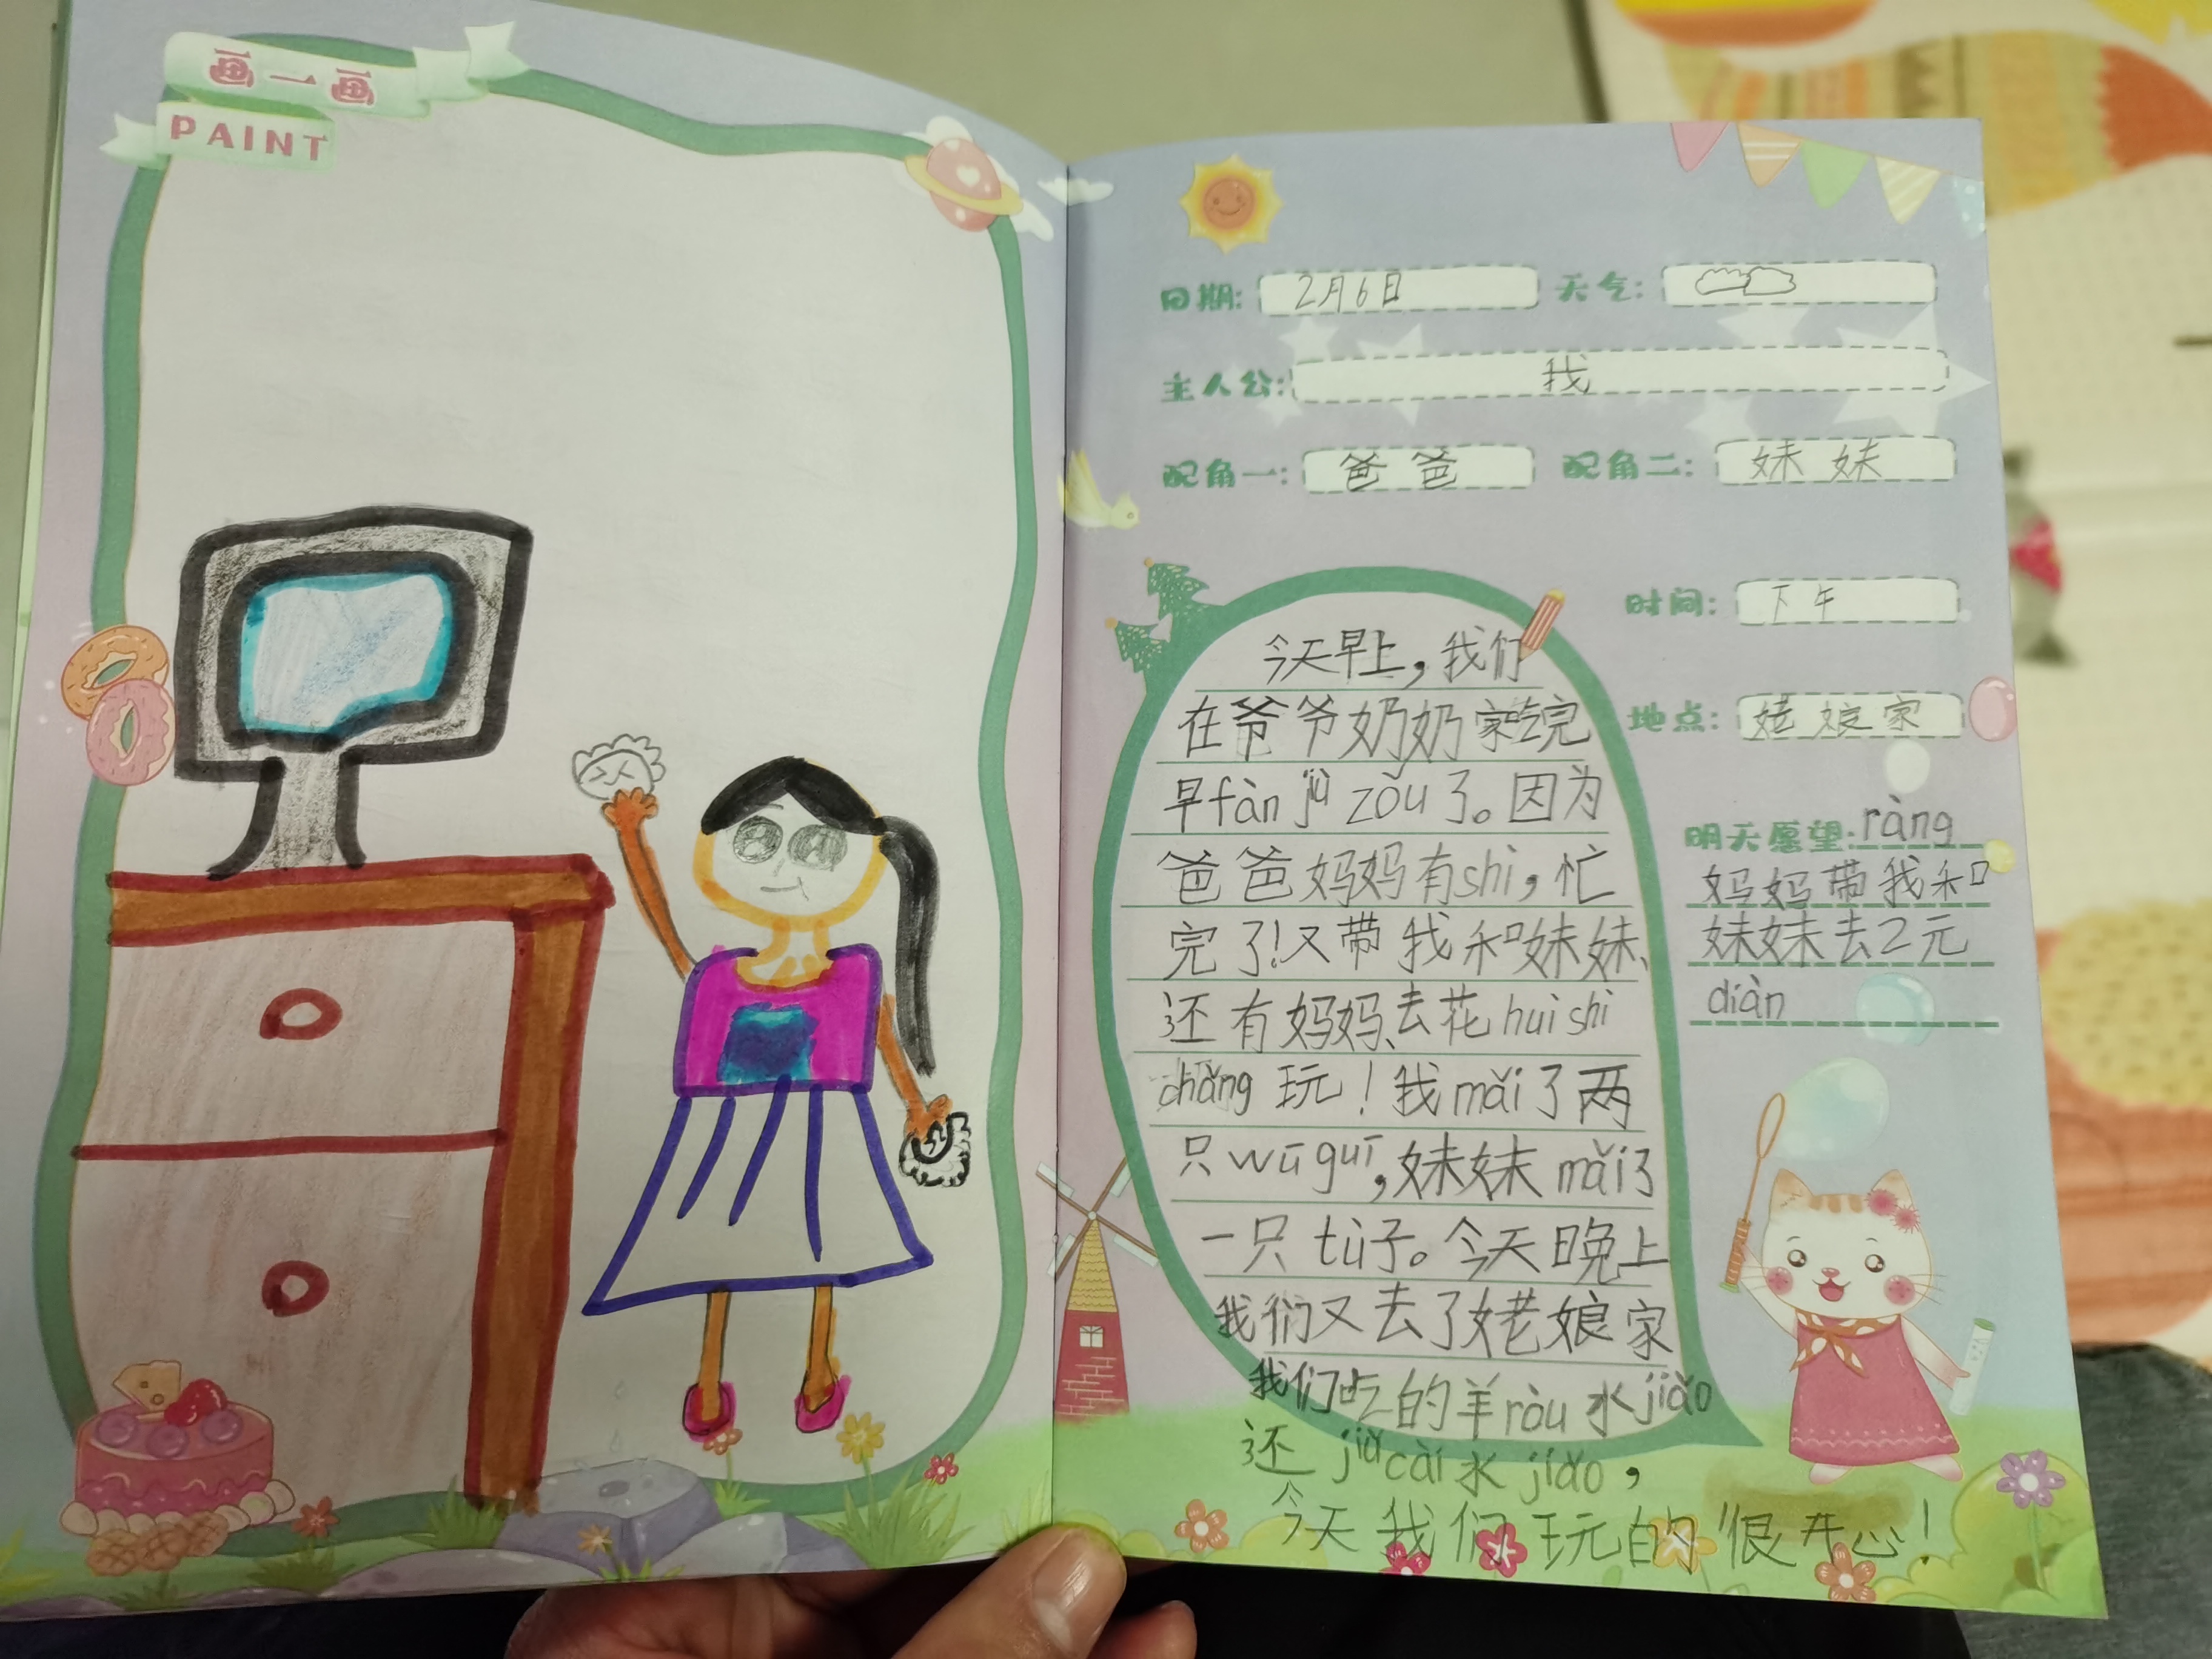 画一画
PAINT
日期: 2月6日 天气:
主人公: 我
配角一: 爸爸 配角二: 妹妹
时间: 下午
地点: 姥娘家
明天愿望: ràng
妈妈带我和
妹妹去2元
diàn
今天早上，我们
在爷爷奶奶家吃完
早fàn jiù zǒu了。因为
爸爸妈妈有shi，忙
完了!又带我和妹妹、
还有妈妈、去花huishi
chǎng玩！我mǎi了两
只wūguī，妹妹mǎi了
一只tù子。今天晚上
我们又去了姥娘家
我们吃的羊ròu水jiǎo
还jiǔcài水jiǎo，
今天我们玩的很开心！